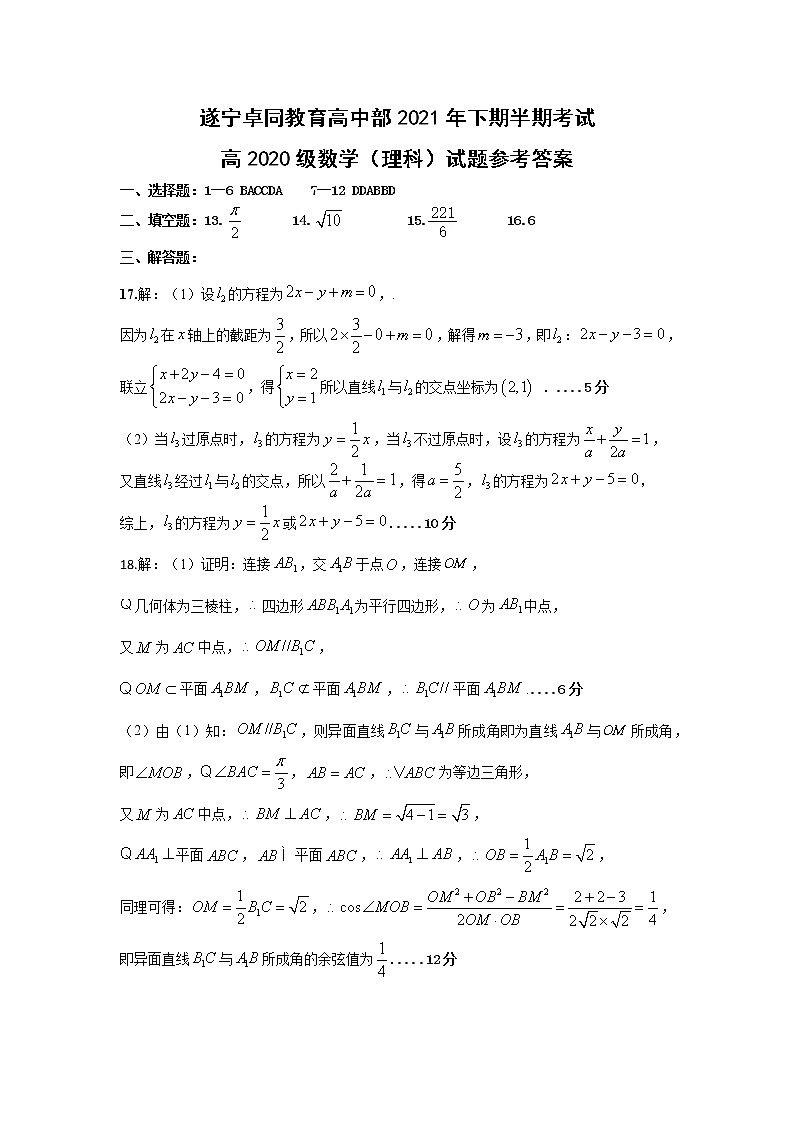 遂宁卓同教育高中部 2021 年下期半期考试
高 2020 级数学（理科）试题参考答案
一、选择题：1—6 BACCDA 7—12 DDABBD
二、填空题：13. π/2 14. √10 15. 221/6 16.6
三、解答题：
17.解：（1）设 l₂ 的方程为 2x－y＋m＝0，.
因为 l₂ 在 x 轴上的截距为 3/2，所以 2×3/2－0＋m＝0，解得 m＝－3，即 l₂：2x－y－3＝0，
联立 {x＋2y－4＝0 2x－y－3＝0，得 {x＝2 y＝1 所以直线 l₁ 与 l₂ 的交点坐标为 (2,1) . ....5 分
（2）当 l₃ 过原点时，l₃ 的方程为 y＝1/2 x，当 l₃ 不过原点时，设 l₃ 的方程为 x/a＋y/2a＝1，
又直线 l₃ 经过 l₁ 与 l₂ 的交点，所以 2/a＋1/2a＝1，得 a＝5/2，l₃ 的方程为 2x＋y－5＝0，
综上，l₃ 的方程为 y＝1/2 x 或 2x＋y－5＝0.....10 分
18.解：（1）证明：连接 AB₁，交 A₁B 于点 O，连接 OM，
Q 几何体为三棱柱，∴ 四边形 ABB₁A₁ 为平行四边形，∴ O 为 AB₁ 中点，
又 M 为 AC 中点，∴ OM//B₁C，
Q OM ⊂ 平面 A₁BM，B₁C ⊄ 平面 A₁BM，∴ B₁C// 平面 A₁BM .....6 分
（2）由（1）知：OM//B₁C，则异面直线 B₁C 与 A₁B 所成角即为直线 A₁B 与 OM 所成角，
即 ∠MOB，Q ∠BAC＝π/3，AB＝AC，∴ VABC 为等边三角形，
又 M 为 AC 中点，∴ BM ⊥ AC，∴ BM＝√4－1＝√3，
Q AA₁ ⊥ 平面 ABC，AB 平面 ABC，∴ AA₁ ⊥ AB，∴ OB＝1/2 A₁B＝√2，
同理可得：OM＝1/2 B₁C＝√2，∴ cos∠MOB＝OM²＋OB²－BM²/2OM·OB＝2＋2－3/2√2×√2＝1/4，
即异面直线 B₁C 与 A₁B 所成角的余弦值为 1/4.....12 分